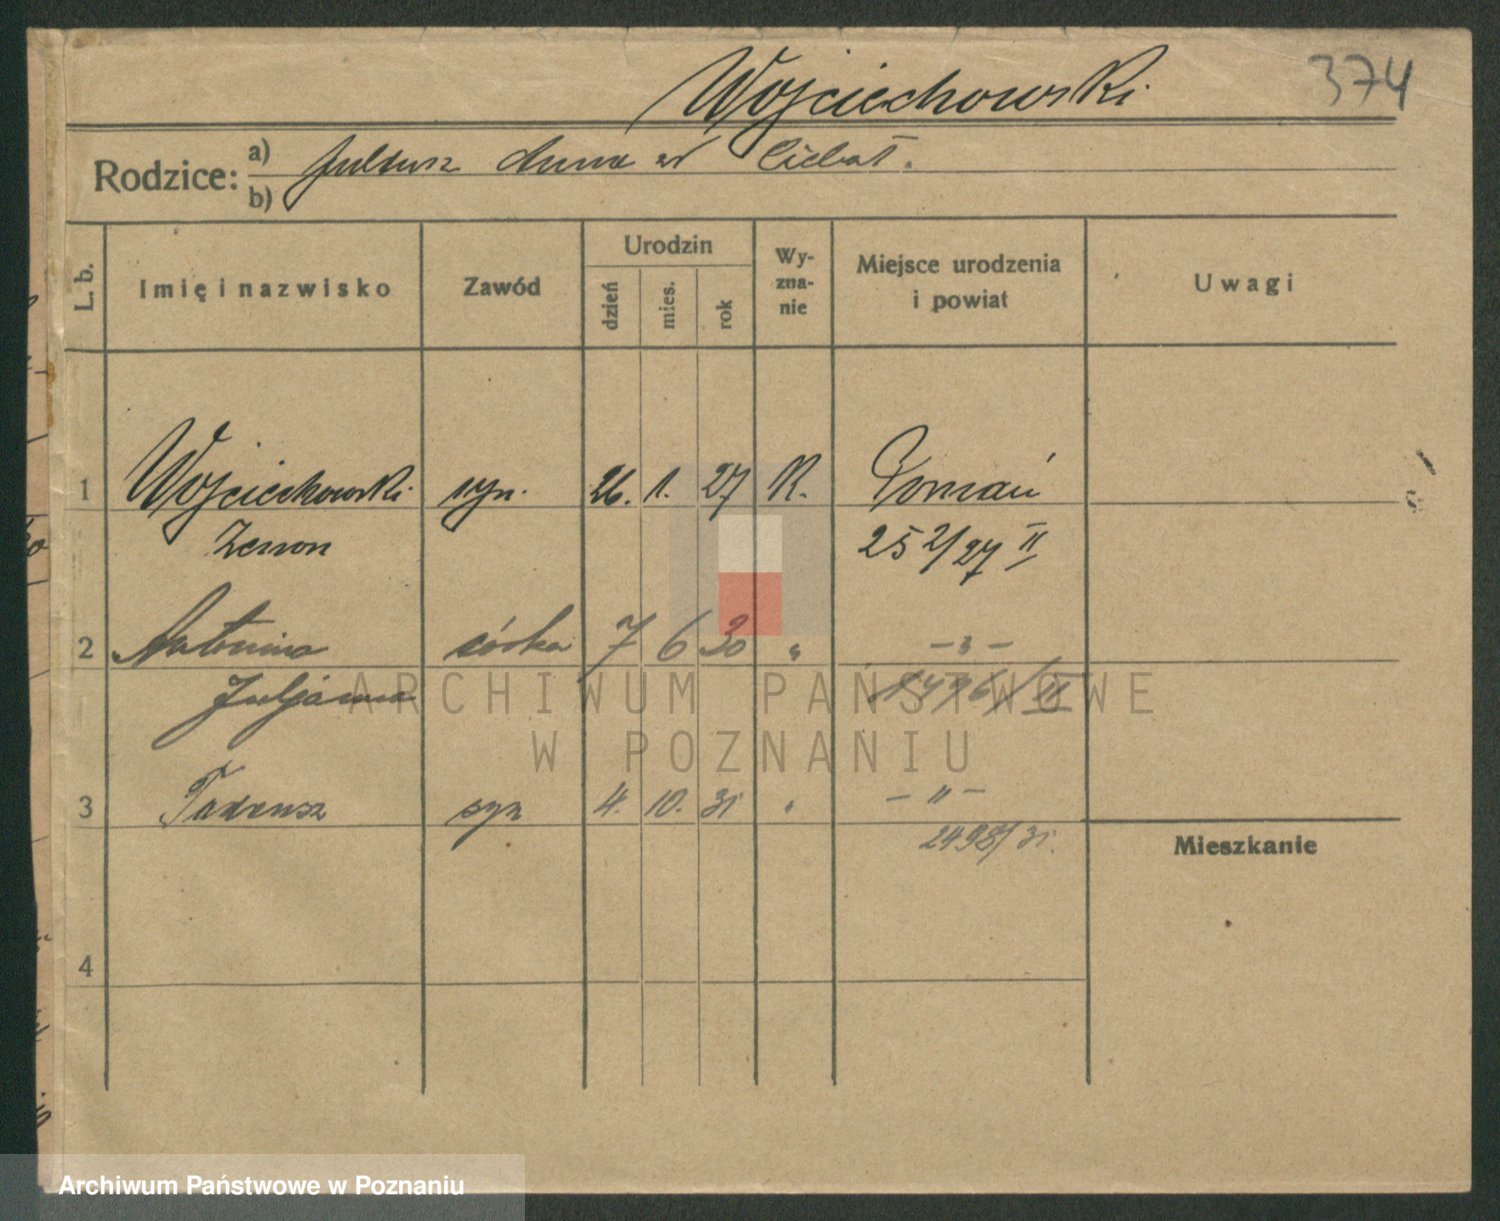 Wojciechowski 374
Rodzice: a) Juljusz Anna
b)
L. b. Imię i nazwisko Zawód Urodzin dzień mies. rok Wyznanie Miejsce urodzenia i powiat Uwagi
1 Wojciechowski syn. 26. 1. 27 K. Poznań
Zenon 25 2/27 II
2 Antonina córka 7 6 30 " – " –
Juljanna 1496/II
3 Tadeusz syn 4. 10. 31 " – " –
2498/31.
Mieszkanie
4
ARCHIWUM PAŃSTWOWE
W POZNANIU
Archiwum Państwowe w Poznaniu